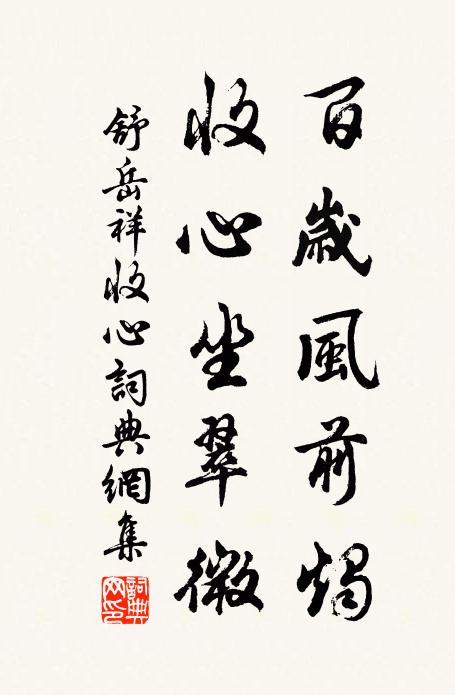 百歲風前燭
收心坐翠微
舒岳祥收心詞典網集
詞典網印